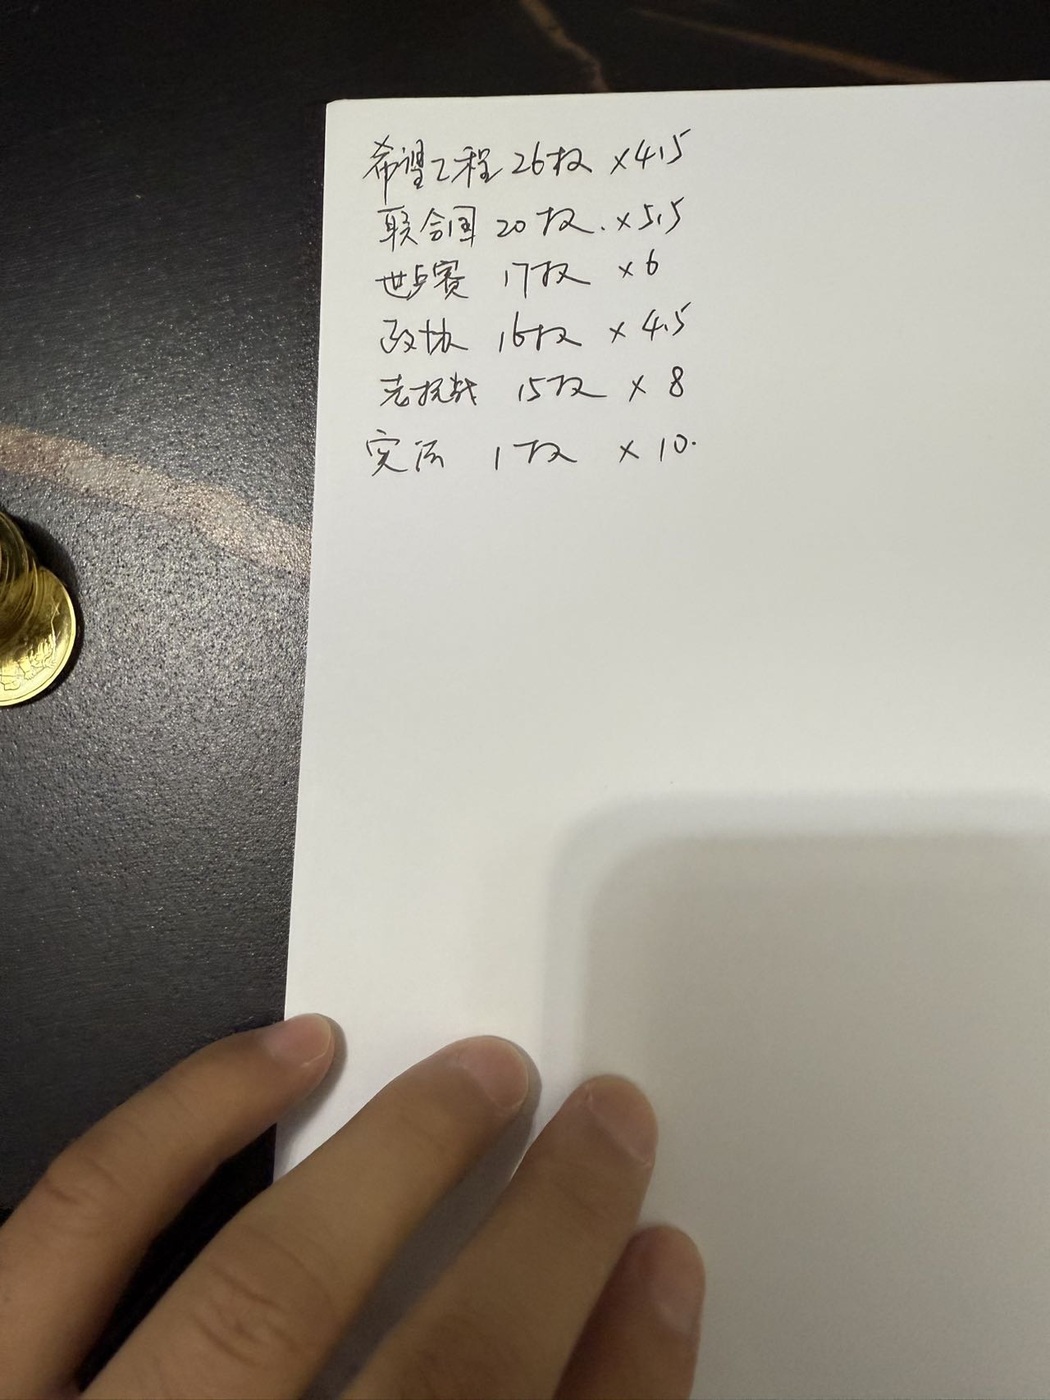 希望工程 26枚 ×4.5
联合国 20枚. ×5.5
世乒赛 17枚 ×6
政协 16枚 ×4.5
老抗战 15枚 × 8
宪法 1枚 × 10.